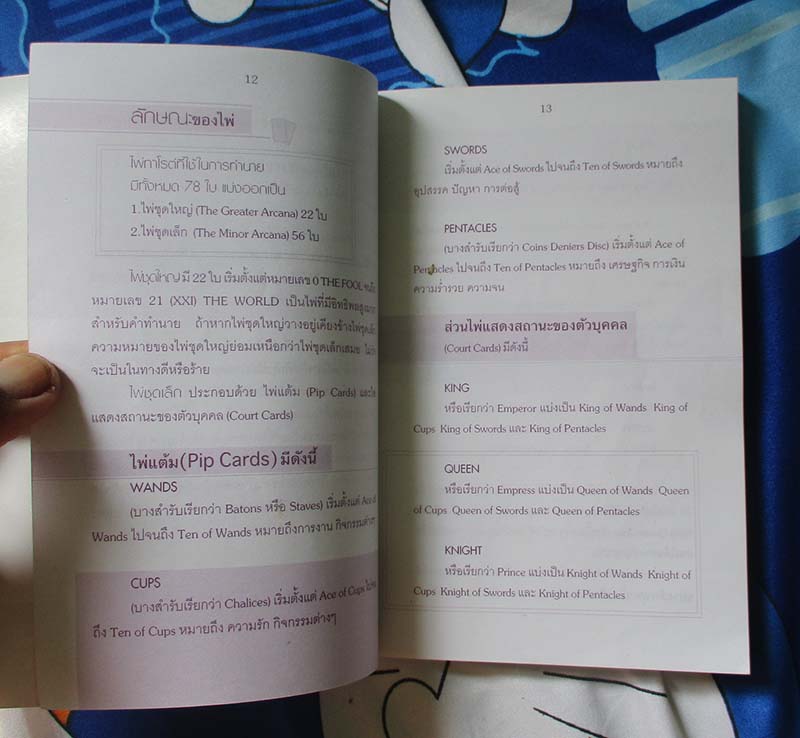 12
ลักษณะของไพ่
ไพ่ทาโรต์ที่ใช้ในการทำนาย
มีทั้งหมด 78 ใบ แบ่งออกเป็น
1.ไพ่ชุดใหญ่ (The Greater Arcana) 22 ใบ
2.ไพ่ชุดเล็ก (The Minor Arcana) 56 ใบ
ไพ่ชุดใหญ่ มี 22 ใบ เริ่มตั้งแต่หมายเลข 0 THE FOOL
หมายเลข 21 (XXI) THE WORLD เป็นไพ่ที่มีอิทธิพล
สำหรับคำทำนาย ถ้าหากไพ่ชุดใหญ่วางอยู่เคียงข้างไพ่ชุดเล็ก
ความหมายของไพ่ชุดใหญ่ย่อมเหนือกว่าไพ่ชุดเล็กเสมอ ไม่ว่า
จะเป็นในทางดีหรือร้าย
ไพ่ชุดเล็ก ประกอบด้วย ไพ่แต้ม (Pip Cards) และไพ่
แสดงสถานะของตัวบุคคล (Court Cards)
ไพ่แต้ม(Pip Cards) มีดังนี้
WANDS
(บางสำรับเรียกว่า Batons หรือ Staves) เริ่มตั้งแต่ Ace of
Wands ไปจนถึง Ten of Wands หมายถึงการงาน กิจกรรมต่างๆ
CUPS
(บางสำรับเรียกว่า Chalices) เริ่มตั้งแต่ Ace of Cups
ถึง Ten of Cups หมายถึง ความรัก กิจกรรมต่างๆ
13
SWORDS
เริ่มตั้งแต่ Ace of Swords ไปจนถึง Ten of Swords หมายถึง
อุปสรรค ปัญหา การต่อสู้
PENTACLES
(บางสำรับเรียกว่า Coins Deniers Disc) เริ่มตั้งแต่ Ace of
Pentacles ไปจนถึง Ten of Pentacles หมายถึง เศรษฐกิจ การเงิน
ความร่ำรวย ความจน
ส่วนไพ่แสดงสถานะของตัวบุคคล
(Court Cards) มีดังนี้
KING
หรือเรียกว่า Emperor แบ่งเป็น King of Wands King of
Cups King of Swords และ King of Pentacles
QUEEN
หรือเรียกว่า Empress แบ่งเป็น Queen of Wands Queen
of Cups Queen of Swords และ Queen of Pentacles
KNIGHT
หรือเรียกว่า Prince แบ่งเป็น Knight of Wands Knight of
Cups Knight of Swords และ Knight of Pentacles